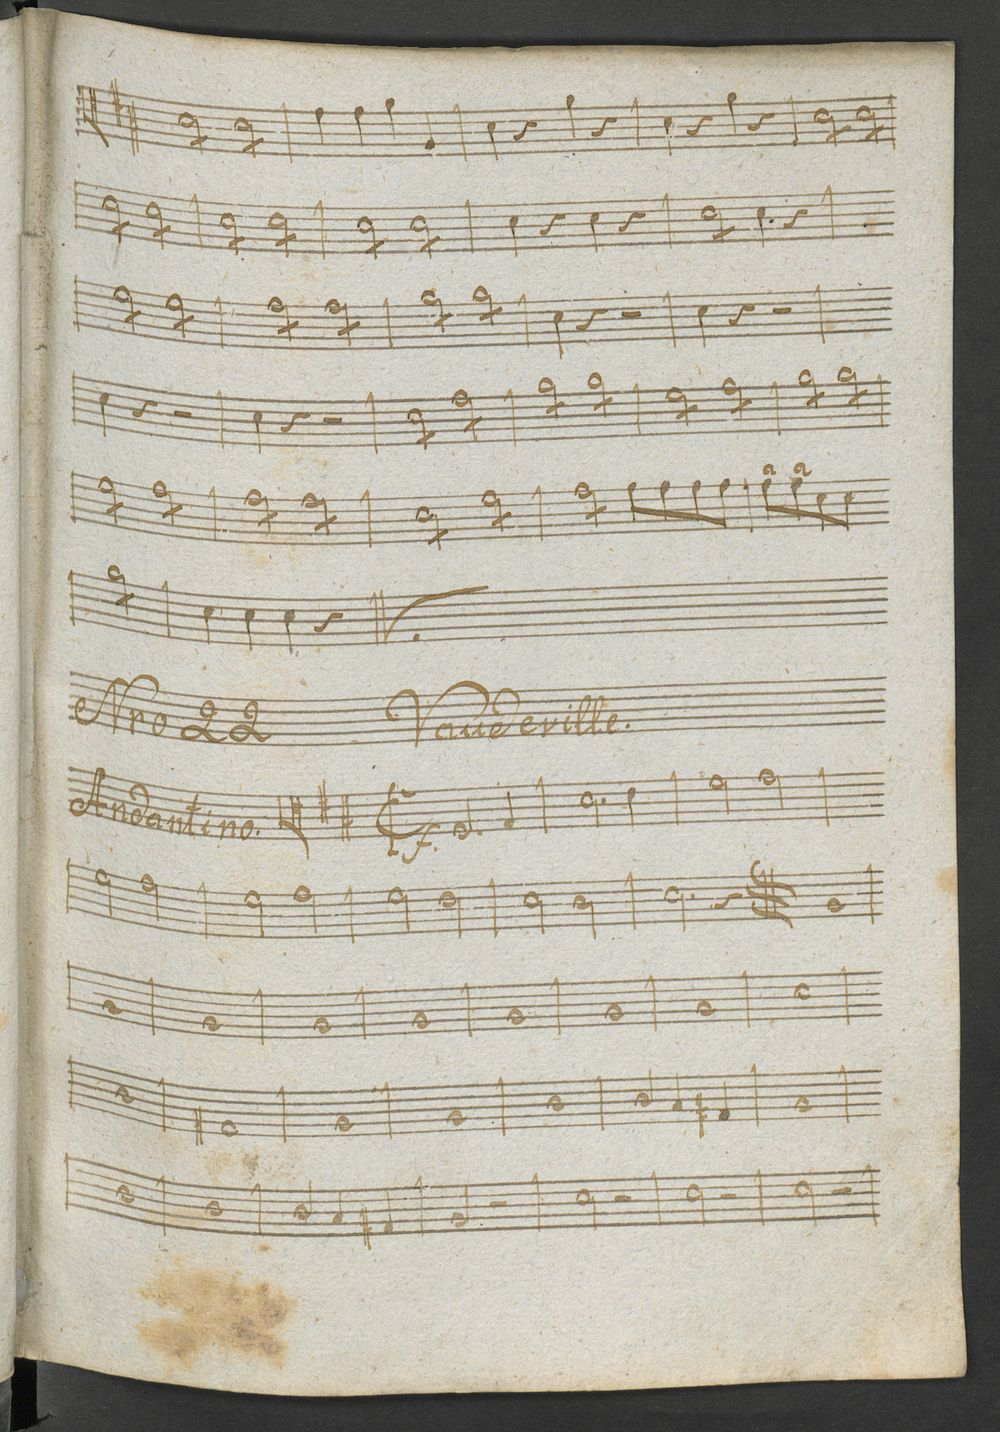 Nro 22 Vaudeville.
Andantino. f.